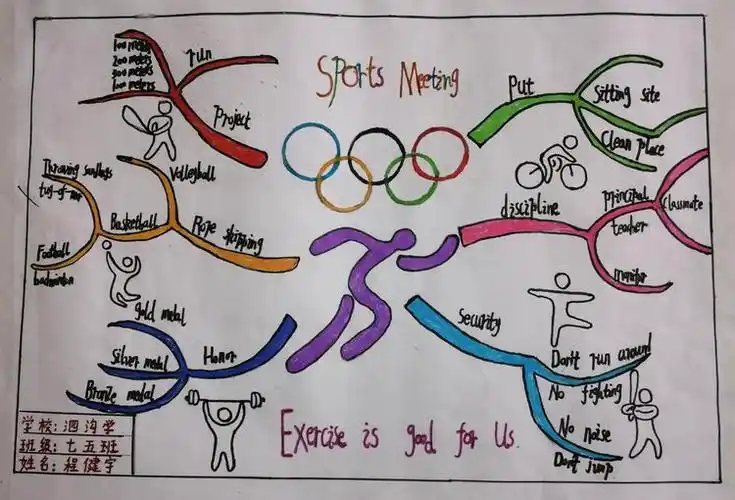 Sports Meeting
100 meters
200 meters
run
Project
Volleyball
Throwing sandbags
tug-of-war
Basketball
Rope skipping
Football
badminton
gold metal
Silver medal
Honor
Bronze medal
Put
Sitting site
Clean place
discipline
principal
Classmate
teacher
monitor
Security
Don't run around
No fighting
No noise
Don't jump
Exercise is good for us.
学校:泗沟学
班级:七五班
姓名:程健宇